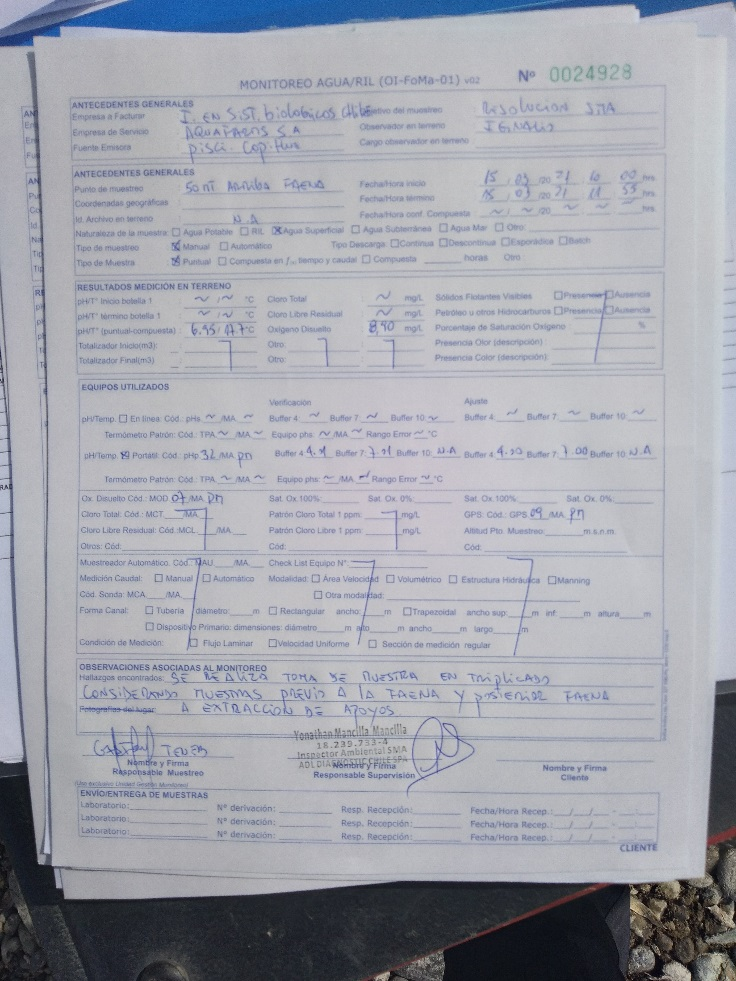 MONITOREO AGUA/RIL (OI-FoMa-01) v02 Nº 0024928
ANTECEDENTES GENERALES
Empresa a Facturar I. EN SIST. biologicos Chile Objetivo del muestreo RESOLUCION SMA
Empresa de Servicio AQUAFARMS S.A Observador en terreno
Fuente Emisora pisci- Cop-flux Cargo observador en terreno
ANTECEDENTES GENERALES
Punto de muestreo 50 mt ARRIBA FAENA Fecha/Hora inicio 15 03 /20 21 00 hrs.
Coordenadas geográficas : Fecha/Hora término 15 03 /20 21 11 55 hrs.
Id. Archivo en terreno N.A Fecha/Hora conf. Compuesta ~ ~ /20 ~ ~ ~ hrs.
Naturaleza de la muestra: ☐ Agua Potable ☐ RIL ☒ Agua Superficial ☐ Agua Subterránea ☐ Agua Mar ☐ Otro:
Tipo de muestreo ☒ Manual ☐ Automático Tipo Descarga: ☐ Continua ☐ Descontinua ☐ Esporádica ☐ Batch
Tipo de Muestra ☒ Puntual ☐ Compuesta en f(x) tiempo y caudal ☐ Compuesta ______ horas Otro
RESULTADOS MEDICION EN TERRENO
pH/Tº Inicio botella 1 ~ / ~ ºC Cloro Total ~ mg/L Sólidos Flotantes Visibles ☐ Presencia ☐ Ausencia
pH/Tº término botella 1 ~ / ~ ºC Cloro Libre Residual ~ mg/L Petróleo u otros Hidrocarburos ☐ Presencia ☐ Ausencia
pH/Tº (puntual-compuesta) : 6.95 /17.7 ºC Oxígeno Disuelto 8,90 mg/L Porcentaje de Saturación Oxígeno %
Totalizador Inicio(m3) Otro: Presencia Olor (descripción)
Totalizador Final(m3) Otro: Presencia Color (descripción)
EQUIPOS UTILIZADOS
Verificación Ajuste
pH/Temp. ☐ En línea: Cód.: pHs ~ /MA ~ Buffer 4: ~ Buffer 7: ~ Buffer 10: ~ Buffer 4: ~ Buffer 7: ~ Buffer 10: ~
Termómetro Patrón: Cód.: TPA ~ /MA ~ Equipo phs: ~ /MA ~ Rango Error ~ ºC
pH/Temp. ☒ Portátil: Cód.: pHp 32 /MA pn Buffer 4: 4.01 Buffer 7: 7.01 Buffer 10: N.A Buffer 4: 4.00 Buffer 7: 7.00 Buffer 10: N.A
Termómetro Patrón: Cód.: TPA ~ /MA ~ Equipo phs: ~ /MA ~ Rango Error ~ ºC
Ox. Disuelto Cód.: MOD 07 /MA pn Sat. Ox.100%: Sat. Ox. 0%: Sat. Ox.100%: Sat. Ox. 0%:
Cloro Total: Cód.: MCT /MA Patrón Cloro Total 1 ppm: mg/L GPS: Cód.: GPS 09 /MA pn
Cloro Libre Residual: Cód.:MCL /MA Patrón Cloro Libre 1 ppm: mg/L Altitud Pto. Muestreo: m.s.n.m.
Otros: Cód: Cód: Cód:
Muestreador Automático. Cód.:MAU /MA Check List Equipo Nº
Medición Caudal: ☐ Manual ☐ Automático Modalidad: ☐ Area Velocidad ☐ Volumétrico ☐ Estructura Hidráulica ☐ Manning
Cód. Sonda: MCA /MA ☐ Otra modalidad:
Forma Canal: ☐ Tubería diámetro: m ☐ Rectangular ancho: m ☐ Trapezoidal ancho sup: m inf: m altura m
☐ Dispositivo Primario: dimensiones: diámetro m alto m ancho m largo m
Condición de Medición: ☐ Flujo Laminar ☐ Velocidad Uniforme ☐ Sección de medición regular
OBSERVACIONES ASOCIADAS AL MONITOREO
Hallazgos encontrados: SE REALIZA TOMA DE MUESTRA EN TRIPLICADO
CONSIDERANDO MUESTRAS PREVIO A LA FAENA Y POSTERIOR FAENA
Fotografías del lugar: A EXTRACCION DE APOYOS
Yonathan Mancilla Mancilla
18.239.753-4
Inspector Ambiental SMA
ADL DIAGNOSTIC CHILE SPA
Nombre y Firma Nombre y Firma Nombre y Firma
Responsable Muestreo Responsable Supervisión Cliente
(Uso exclusivo Unidad Gestión Monitoreo)
ENVÍO/ENTREGA DE MUESTRAS
Laboratorio: Nº derivación: Resp. Recepción: Fecha/Hora Recep.: / / - :
Laboratorio: Nº derivación: Resp. Recepción: Fecha/Hora Recep.: / / - :
Laboratorio: Nº derivación: Resp. Recepción: Fecha/Hora Recep.: / / - :
CLIENTE